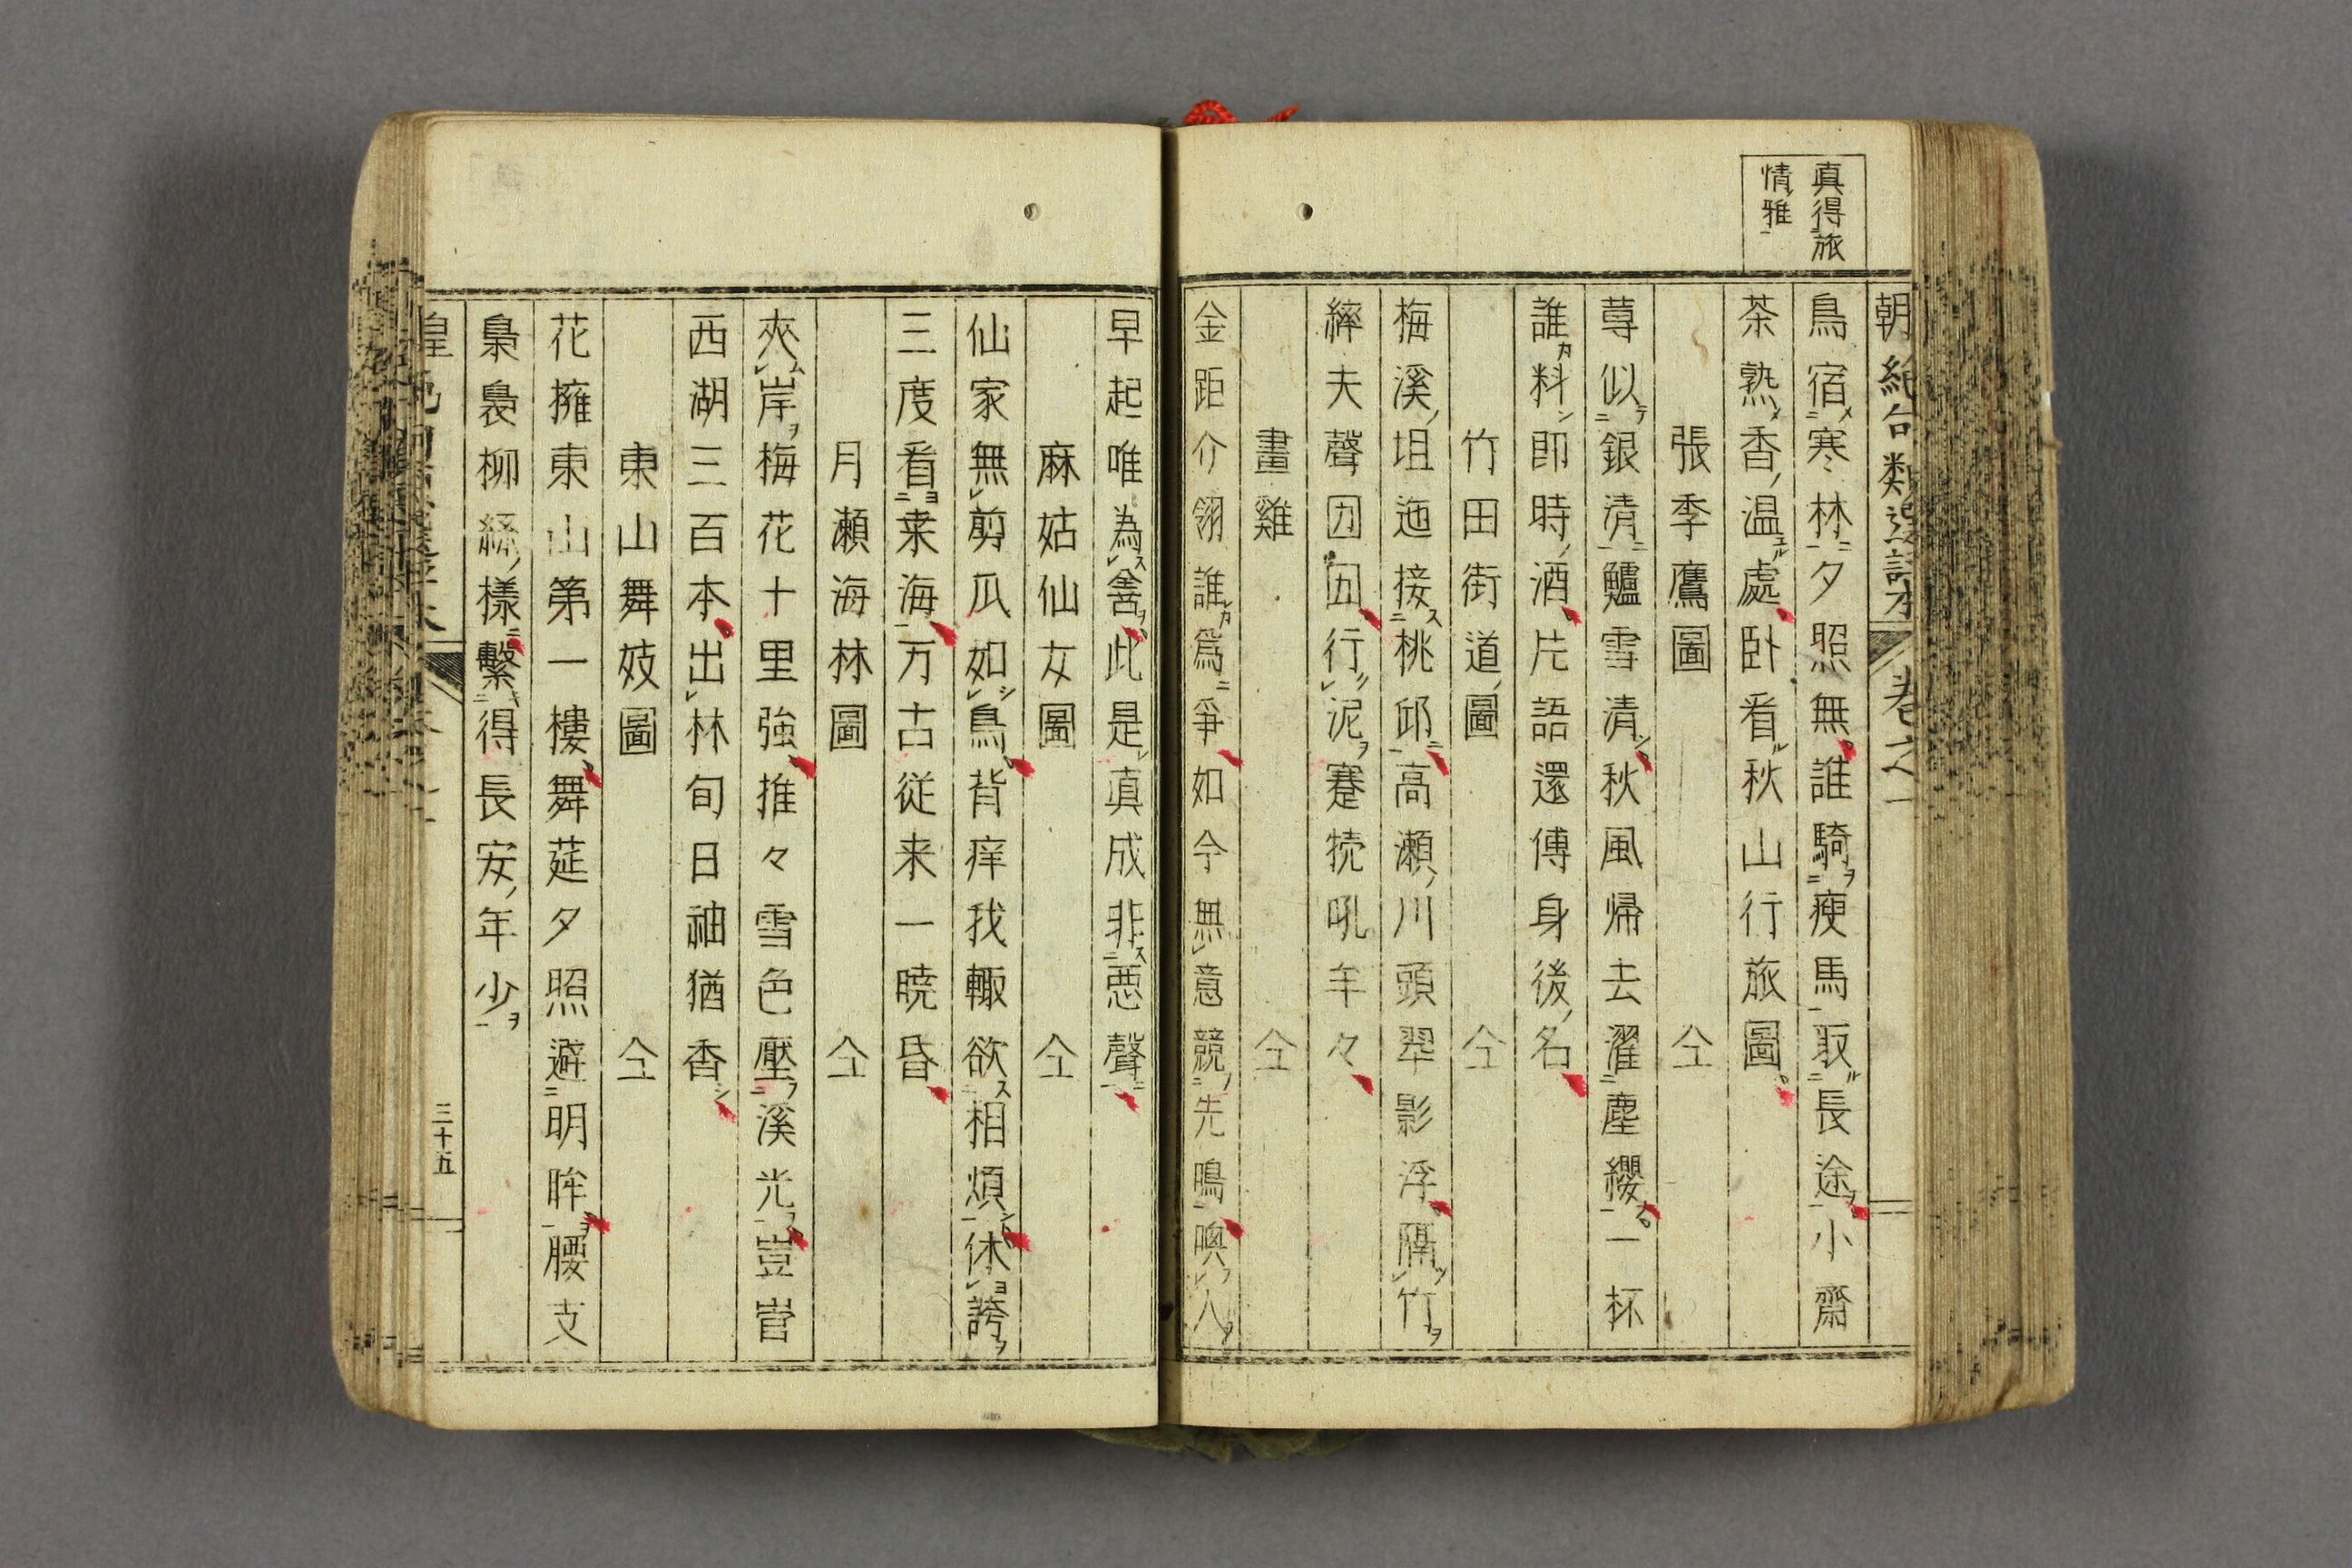 真得旅
情雅
鳥宿寒林夕照無誰騎瘦馬取長途小齋
茶熟香温處卧看秋山行旅圖
張季鷹圖 仝
蓴似銀清鱸雪清秋風帰去濯塵纓一杯
誰料即時酒片語還傳身後名
竹田街道圖 仝
梅溪坦迤接桃邱高瀬川頭翠影浮隔竹
縴夫聲囙囙行泥蹇犢吼牟々
畫雞 仝
金距介翎誰爲爭如今無意競先鳴喚人
早起唯為善此是真成非悪聲
麻姑仙女圖 仝
仙家無剪瓜如鳥背痒我輙欲相煩休誇
三度看来海万古従来一暁昏
月瀬海林圖 仝
夾岸梅花十里強推々雪色壓溪光豈啻
西湖三百本出林旬日袖猶香
東山舞妓圖 仝
花擁東山第一樓舞莚夕照避明眸腰支
梟裊柳絲様繋得長安年少
三十五